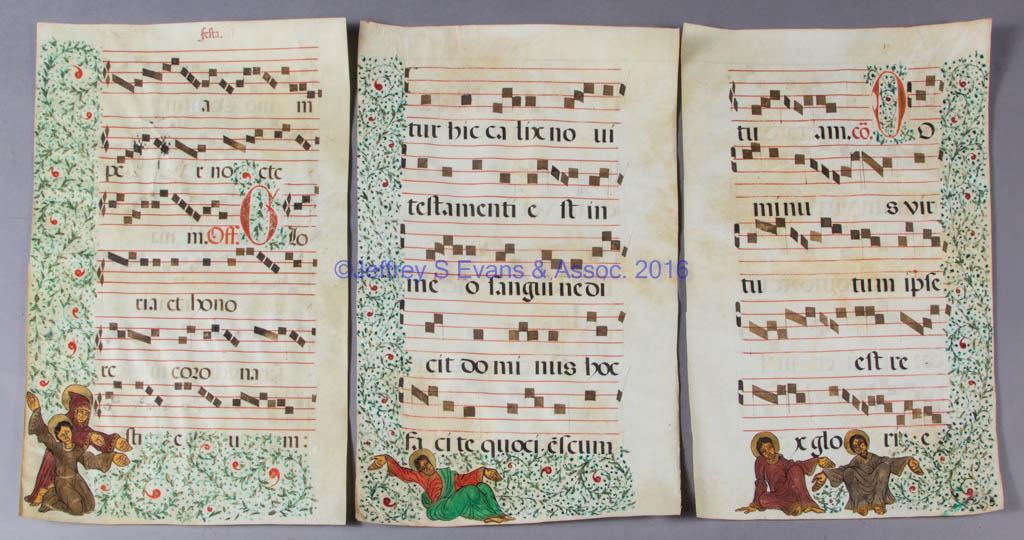 festa.
a m
pe r no cte
m. Off. G lo
ria et hono
re coro na
sti e u m:
tur hic ca lix no ui
testamenti e st in
me o sanguine di
cit do mi nus hoc
fa ci te quoci ẽscum
tu am. cõ. O O
minu s vir
tu tum ipse
est re
x glo ri e
©Jeffrey S Evans & Assoc. 2016